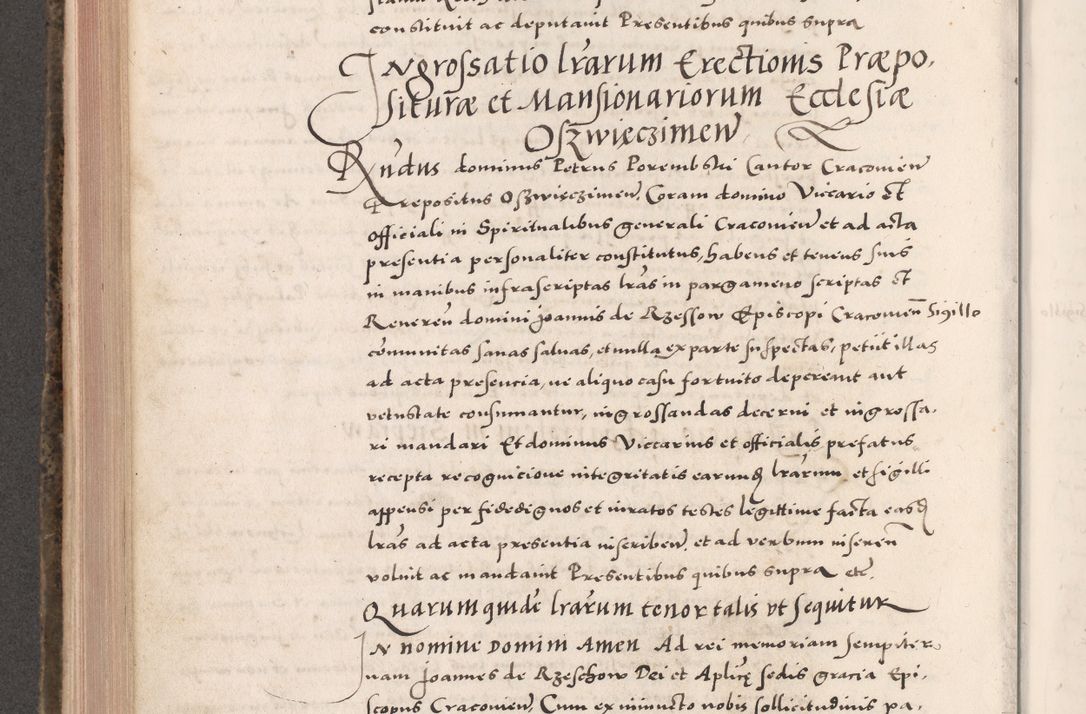 constituit ac deputavit Presentibus quibus supra
Ingrossatio lrarum Erectionis Præpo,
siturae et Mansionariorum Ecclesiæ
Oszwięczimen
Rndus dominus Petrus Porembski Cantor Cracovien
Prepositus Oszwięczimen, Coram domino Viccario et
officiali in Spiritualibus generali Cracovien et ad acta
presentia personaliter constitutus, habens et tenens suis
in manibus infrascriptas lras in pargameno scriptas et
Reveren domini Joannis de Rzessow Episcopi Cracovien Sigillo
comunitas sanas salvas, et nulla ex parte suspectas, petiit illas
ad acta presencia, ne aliquo casu fortuito depereant aut
vetustate consumantur, ingrossandas decerni et ingrossa,
ri mandari Et dominus Viccarius et officialis prefatus
recepta recognicione integritatis earundq lrarum et sigilli
appensi per fidedignos et iuratos testes legittime facta easdq
lras ad acta presentia inscriben, et ad verbum inseren
voluit ac mandavit Presentibus quibus supra etc.
Quarum quide lrarum tenor talis ut sequitur
In nomine Domini Amen Ad rei memoriam sempiter
nam Joannes de Rzeschow Dei et Aplice sedis gracia Epi,
scopus Cracovien, Cum ex iniuncto nobis sollicitudinis pa,